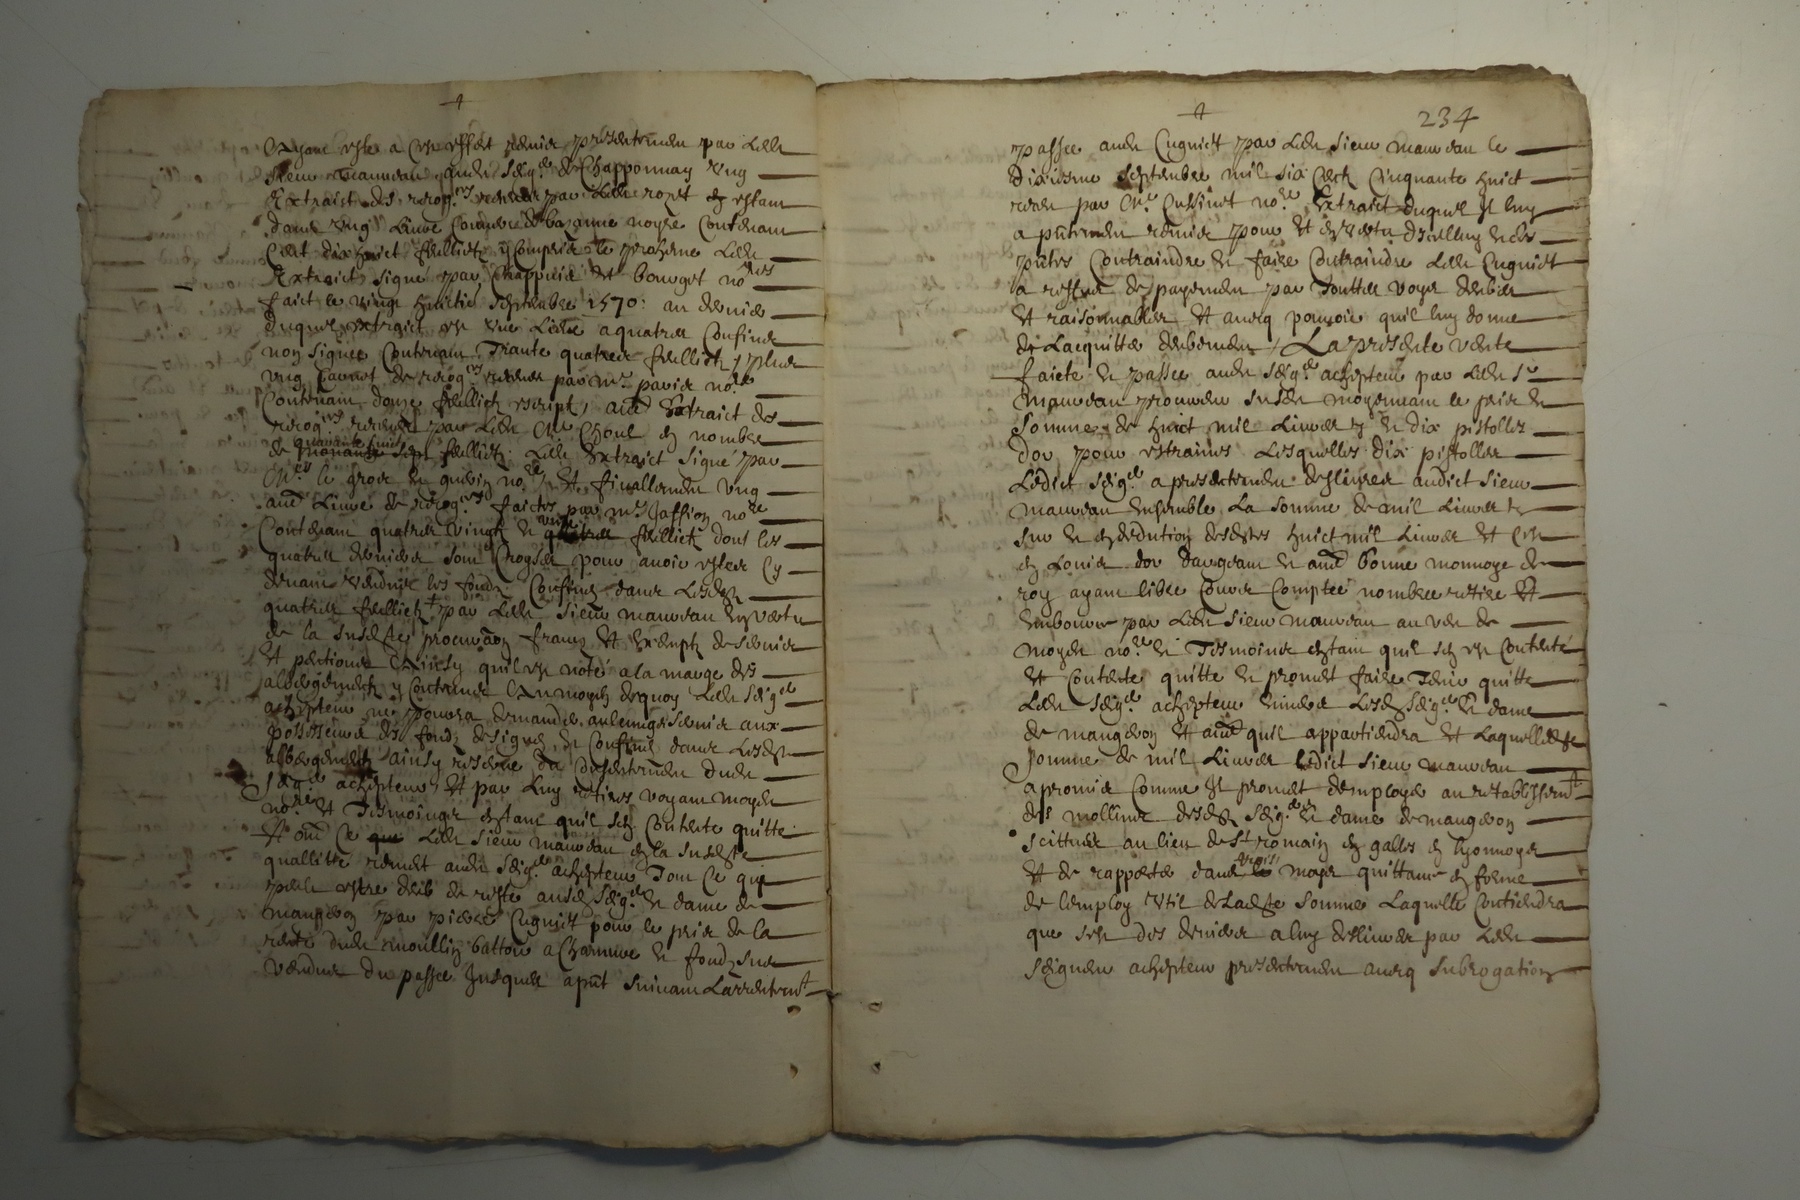 Ayant esté a cest effect remis presentemen par Ledt
sieur Mauvean audt Seigr de Chapponnay Ung
Extraict des recogces receues par Ledt rozet et estant
dans Ung Livre Couvert de bazanne noyre Contenant
Cent dix huict feulliets y Compris le proheme Ledt
Extraict signé par Chappuis et bourget nores
faict le vingt huictie septembre 1570: au dernier
duquel extraict est une Liève a quatres Confins
non signee Contenant Trante quatres feulliets plus
ung Carnet de recogces receues par Mre paris nore
Contenant douze feulliets escript, aue Extraict des
recogces receues par Ledt Mre Choul en nombre
de quarante huict feulliets Ledt Extraict signé par
Mres le gros et nore Et finallemen Ung
aue Livre de recogces faictes par Mre Jassion nore
Contenant quatres Vingts et feulliets dont les
quatres derniers sont Croysés pour avoir esté Cy
devant Vendus les fonds Confinés dans Lesdts
quatres feulliets par Ledt Sieur Mauvean en vertu
de la susdte procuraon francs Et exempts de servis
Et pentions Ainsy quil est noté a la marge des
albergements y Contenus Au moyen dequoy Ledt Seigr
achepteur ne pourra demander aulcungs servis aux
possesseurs des fonds designés et Confinés dans Lesdts
albergements ainsy reserve du Consentemen dudt
Seigr achepteur Et par Luy retirés voyant moyen
nore et Tesmoings estant quil sen Contente quitte
Et oue Ce Ledt Sieur Mauvean en la susdte
quallitté remet audt Seigr achepteur Tout Ce qui
peult estre deub de reste ausdts Seigr et dame de
maugeron par pierre Cugniet pour le pris de la
rente dudt moullin battoir a Chanvre et fonds sus
Vendus du passee Jusques a pnt suivant Larrentemt
234
passee audt Cugniet par Ledt Sieur Mauvean le
dixiesme septembre mil six Cent Cinquante huict
receu par Mre Cussinet nore Extraict duquel Il luy
a pntemen remis pour Et en vertu dicelluy et des
pntes Contraindre et faire Contraindre Ledt Cugniet
a reste de payemen par Touttes voyes deubes
Et raisonnables Et avecq pouvoir quil luy donne
de Lacquitter deubemen / La presente vente
faicte et passee audt Seigr achepteur par Ledt Sr
Mauvean procureur susdt moyennant le pris et
Somme de huict mil Livres ts et dix pistolles
dor pour estraines Lesquelles dix pistolles
Ledict Seigr a presentemen deslivrés audict Sieur
Mauvean Ensemble La Somme de mil Livres ts
sur et en dedution desdtes huict mil Livres Et Ce
en Louis dor dargean et aue bonne monnoye de
roy ayant libre Cours Comptee nombree retiree Et
Emboursee par Ledt Sieur Mauvean au veu de
moyen nore et Tesmoins estant quil sen est Contenté
Et Contente quitte et promet faire Tenir quitte
Ledt Seigr achepteur Envers Lesdts Seigr Et dame
de maugeron Et aue quil appartiendra Et Laquelledte
somme de mil Livres Ledict Sieur Mauvean
a promis Comme Il promet demployer au restablissemt
des mollins desdts Seigr Et dame de maugeron
scittués au lieu de St romain en galles en lyonnoys
Et de rapporter dans trois moys quittance en forme
de lemploy Util de Ladte Somme Laquelle Contiendra
que sest des deniers a luy deslivrés par Ledt
Seigneur achepteur presentemen avecq subrogation